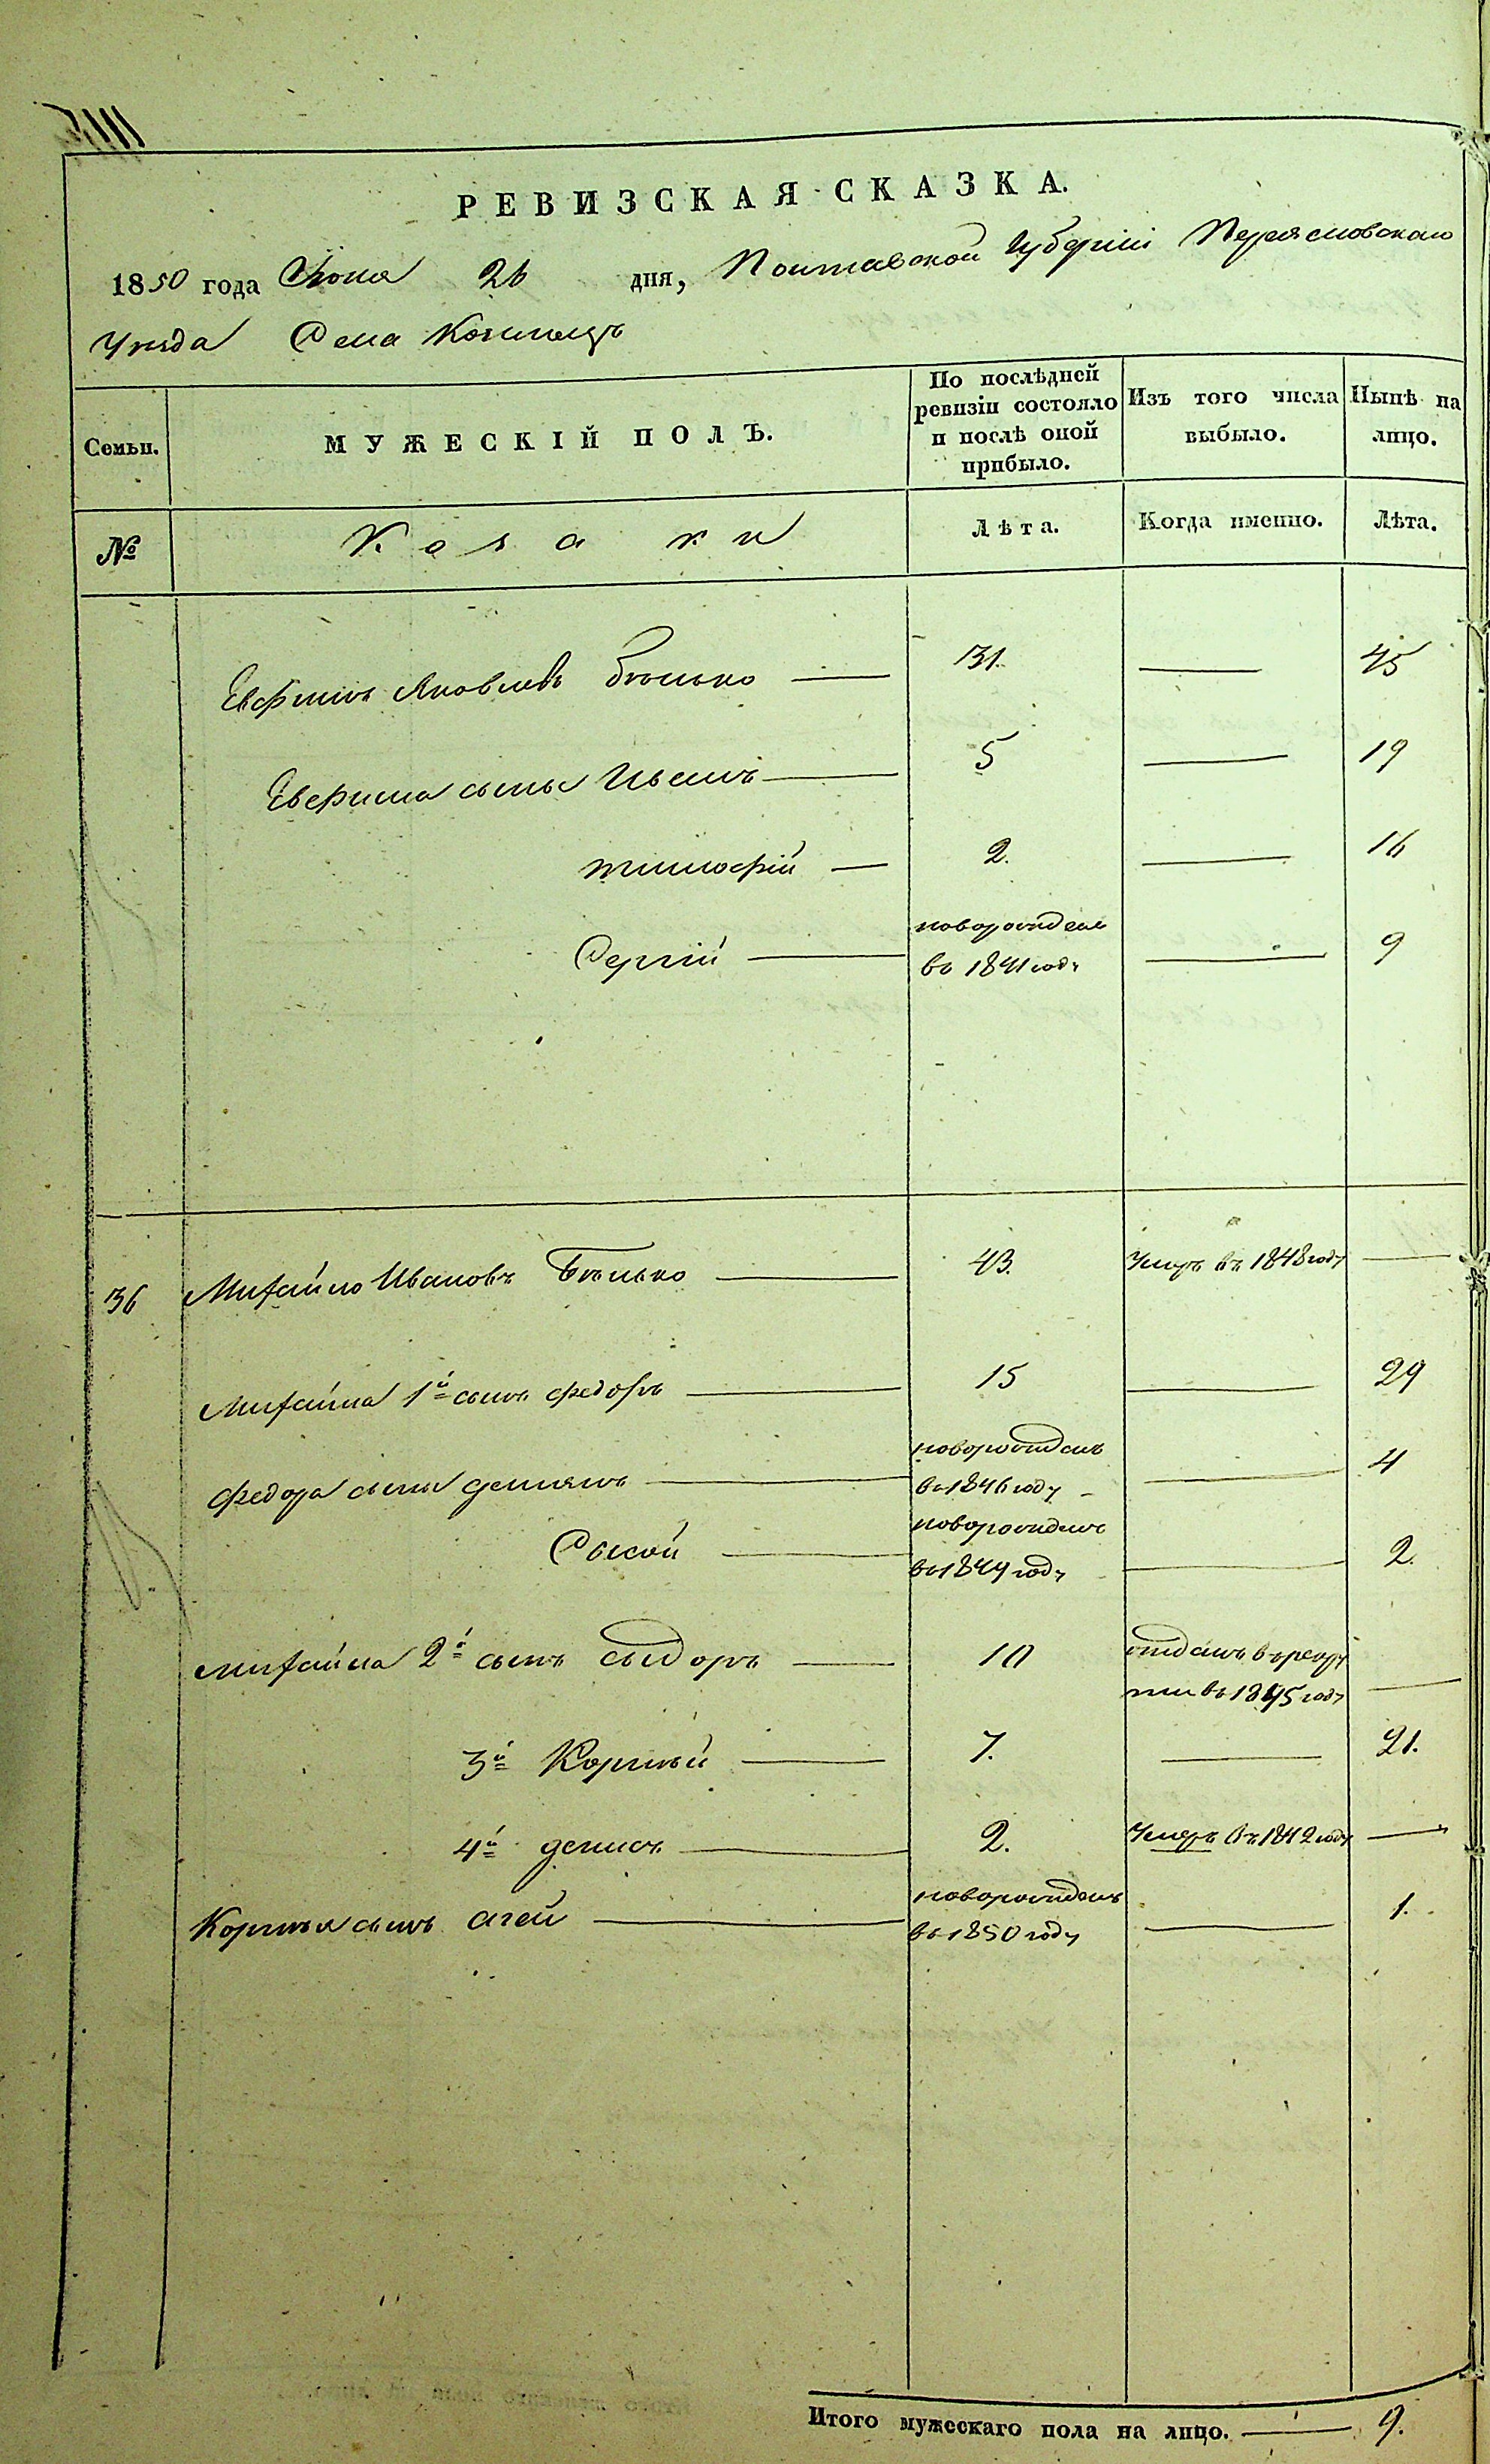 РЕВИЗСКАЯ СКАЗКА.
1850 года Іюня 26 дня, Полтавской Губерніи Переясловскаго
Уезда Села
Семьи.
МУЖЕСКІЙ ПОЛЪ.
По послѣдней ревизіи состояло и послѣ оной прибыло.
Изъ того числа выбыло.
Нынѣ на лицо.
№
Козаки
Лѣта.
Когда именно.
Лѣта.
Евфимъ Яковлевъ Бѣлько — 31. — 45
Евфима сыны Иванъ — 5 — 19
тимофій — 2. — 16
Сергій — новорожденъ — 9
въ 1841 году
36 Михайло Ивановъ Бѣлько — 43. Умеръ въ 1848 году —
Михайла 1й сынъ федоръ — 15 — 29
федора сыны демьянъ — новорожденъ — 4
въ 1846 году
Сысой — новорожденъ — 2.
въ 1849 году
михайла 2й сынъ сидоръ — 10 отданъ въ рекру
ты въ 1845 году —
3й Корнѣй — 7. — 21.
4й денисъ — 2. Умеръ въ 1842 году —
Корнѣя сынъ агей — новорожденъ — 1.
въ 1850 году
Итого мужескаго пола на лицо. — 9.